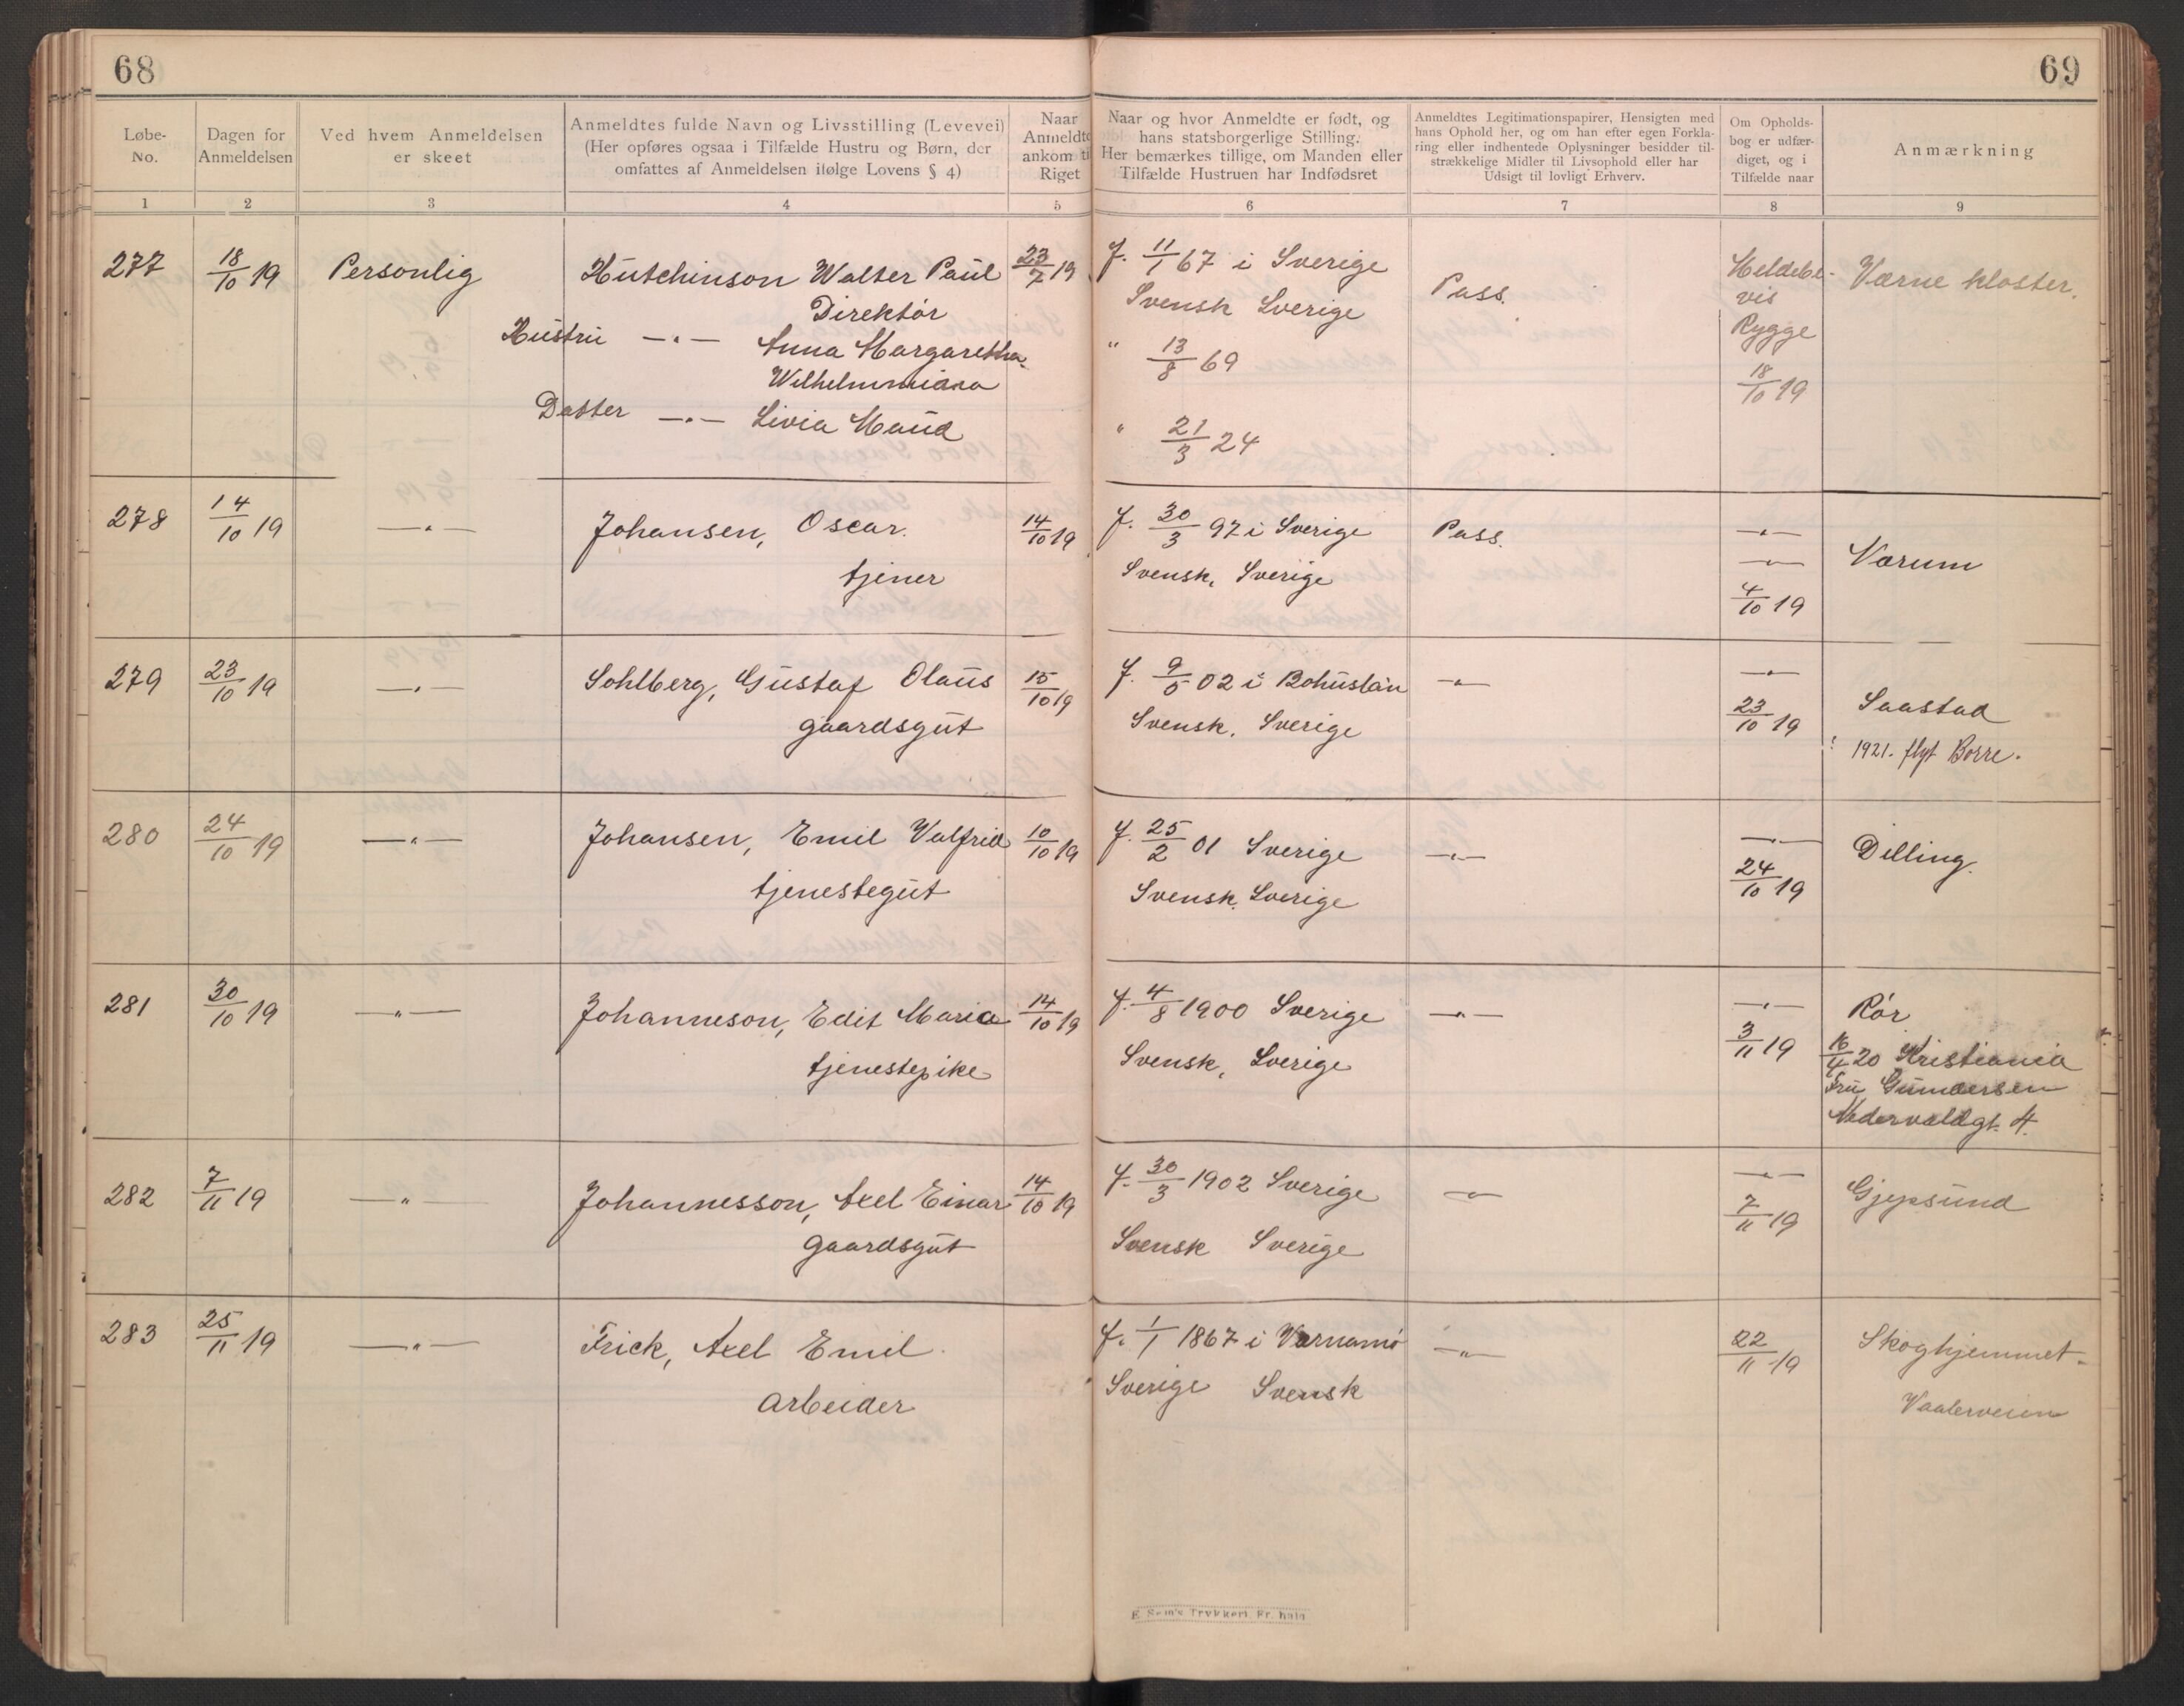 68
69
Løbe-No.
Dagen for Anmeldelsen
Ved hvem Anmeldelsen er skeet
Anmeldtes fulde Navn og Livsstilling (Levevei)
(Her opføres ogsaa i Tilfælde Hustru og Børn, der
omfattes af Anmeldelsen ifølge Lovens § 4)
Naar
Anmeldte
ankom ti
Riget
Naar og hvor Anmeldte er født, og
hans statsborgerlige Stilling.
Her bemærkes tillige, om Manden eller
Tilfælde Hustruen har Indfødsret
Anmeldtes Legitimationspapirer, Hensigten med
hans Ophold her, og om han efter egen Forkla-
ring eller indhentede Oplysninger besidder til-
strækkelige Midler til Livsophold eller har
Udsigt til lovligt Erhverv.
Om Opholds-
bog er udfær-
diget, og i
Tilfælde naar
Anmærkning
1 2 3 4 5 6 7 8 9
277 18/10 19 Personlig Hutchinson Walter Paul 23/7 19 f. 11/1 67 i Sverige Pass. Meldebe- Værne kloster.
Direktör Svensk Sverige vis
Hustru —"— Anna Margaretha " 13/8 69 Rygge
Wilhelmmiana 18/10 19
Datter —"— Livia Maud " 21/3 24
278 14/10 19 —"— Johansen, Oscar. 14/10 19 f. 30/3 97 i Sverige Pass. —"—
tjener Svensk, Sverige —"— Varum
4/10 19
279 23/10 19 —"— Sohlberg, Gustaf Olaus 15/10 19 f. 9/5 02 i Bohuslän —"— —"— Saastad
gaardsgut Svensk, Sverige 23/10 19
1921. flyt Borre.
280 24/10 19 —"— Johansen, Emil Valfrid 10/10 19 f. 25/2 01 Sverige —"— —"— Dilling.
tjenestegut Svensk. Sverige 24/10 19
281 30/10 19 —"— Johanneson, Edit Maria 14/10 19 f. 4/8 1900 Sverige —"— —"— Rör
tjenestepike Svensk, Sverige 3/11 19 16/4 20 Kristiania
Fru Gundersen
Nedervaldgt. 4.
282 7/11 19 —"— Johannesson, Axel Einar 14/10 19 f. 30/3 1902 Sverige —"— —"— Gjepsund
gaardsgut Svensk Sverige 7/11 19
283 25/11 19 —"— Frick, Axel Emil. f. 1/1 1867 i Varnamö —"— 22/11 19 Skoghjemmet.
arbeider Sverige Svensk Vaalerveien
E Sem's Trykkeri, Fr.hald